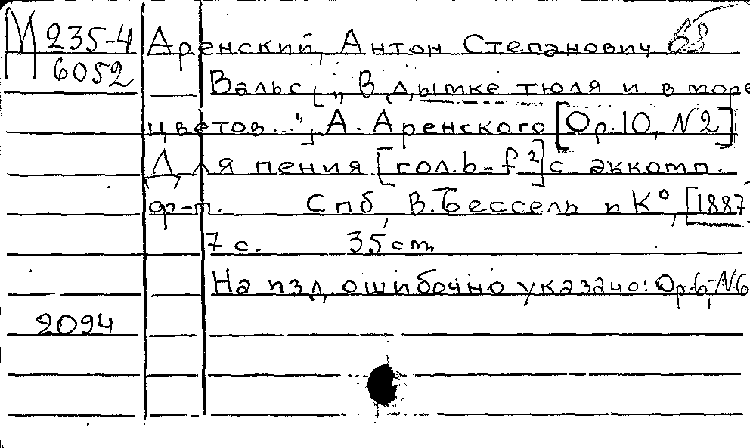 М 235-4 Аренский, Антон Степанович 68
6052 Вальс [„В дымке тюля и в море
цветов..."], А. Аренского [Op.10, N2]
Для пения [гол. b-f²] с аккомп.
ф-п. Спб, В. Бессель и К°, [1887]
7 с. 35 cm
На изд. ошибочно указано: Op.6, N6
2094